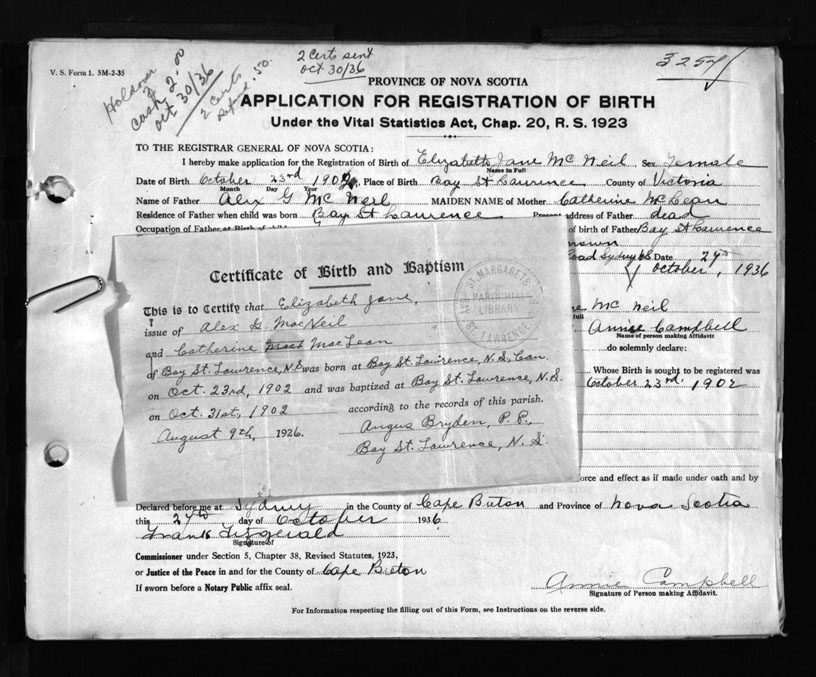 V. S. Form 1. 5M-2-35
Holdover
Cash 2.00
Oct 30/36
2 Certs
Refund .50.
2 Certs sent
Oct 30/36
3254
PROVINCE OF NOVA SCOTIA
APPLICATION FOR REGISTRATION OF BIRTH
Under the Vital Statistics Act, Chap. 20, R. S. 1923
TO THE REGISTRAR GENERAL OF NOVA SCOTIA:
I hereby make application for the Registration of Birth of Elizabeth Jane McNeil, Sex Female
Name in Full
Date of Birth October 23rd 1902, Place of Birth Bay St Laurence County of Victoria
Month Day Year
Name of Father Alex G McNeil MAIDEN NAME of Mother Catherine McLean
Residence of Father when child was born Bay St Laurence Present address of Father dead
Occupation of Father at Birth of child of birth of Father Bay St Lawrence
Road Sydney NS. Date 27th
October, 1936
Certificate of Birth and Baptism
This is to Certify that Elizabeth Jane,
issue of Alex G. MacNeil
and Catherine MacLean
of Bay St. Lawrence, N.S was born at Bay St. Lawrence, N.S., Can.
on Oct. 23rd, 1902 and was baptized at Bay St. Lawrence, N.S.
on Oct. 31st, 1902 according to the records of this parish.
August 9th, 1926. Angus Bryden, P. P.,
Bay St. Lawrence, N. S.
ST. MARGARET'S
PAROCHIAL
LIBRARY
ST. LAWRENCE
McNeil
Annie Campbell
Name of person making Affidavit.
do solemnly declare:
Whose Birth is sought to be registered was
October 23rd. 1902
force and effect as if made under oath and by
Declared before me at Sydney in the County of Cape Breton and Province of Nova Scotia
this 27th day of October 1936
Frank Fitzgerald
Signature of
Commissioner under Section 5, Chapter 38, Revised Statutes, 1923,
or Justice of the Peace in and for the County of Cape Breton
If sworn before a Notary Public affix seal.
Annie Campbell
Signature of Person making Affidavit.
For Information respecting the filling out of this Form, see Instructions on the reverse side.